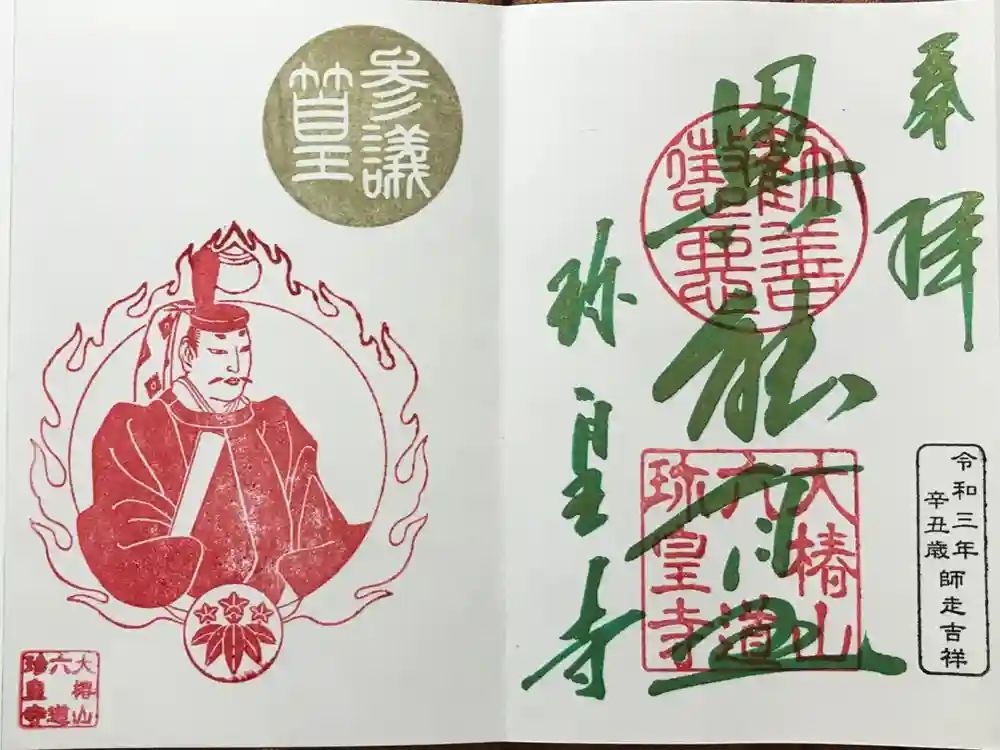 奉拝
勸善
懲惡
大椿山
六道
珍皇寺
珍皇寺
令和三年
辛丑歳
師走吉祥
參議
篁
大椿山
六道
珍皇寺